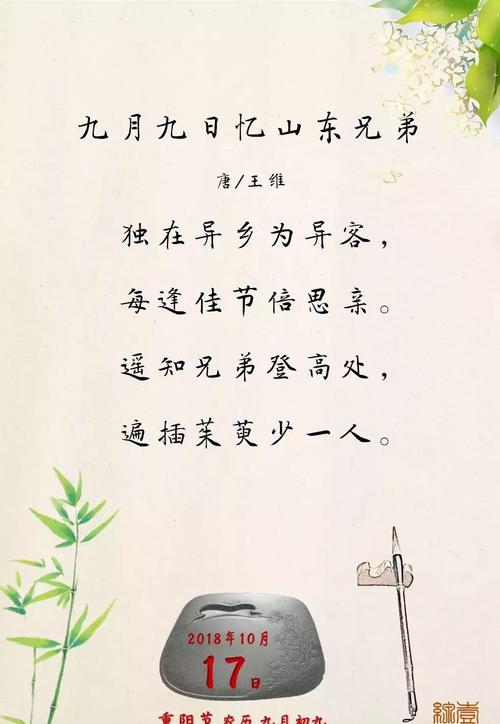 九月九日忆山东兄弟
唐/王维
独在异乡为异客，
每逢佳节倍思亲。
遥知兄弟登高处，
遍插茱萸少一人。
2018年10月
17日
重阳节 农历九月初九